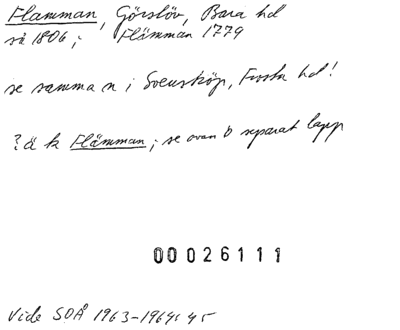 Flamman, Görslöv, Bara hd
så 1806; Flämman 1779
se samma n i Svensköp, Frosta hd!
?ä k Flämman; se ovan o separat lapp
00026111
Vide SOÅ 1963-1964: 45